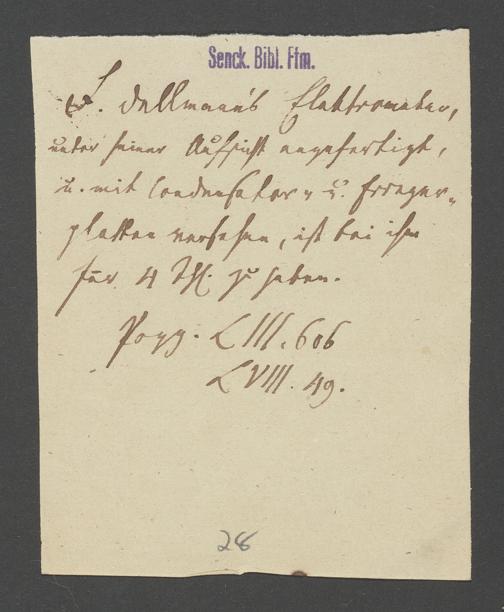 Senck. Bibl. Ffm.
F. Dellmann's Elektrometer,
unter seiner Aufsicht angefertigt,
u. mit Condensator- u. Erreger-
platten versehen, ist bei ihm
für 4 Thl. zu haben.
Pogg. LIII. 606
LVIII. 49.
28